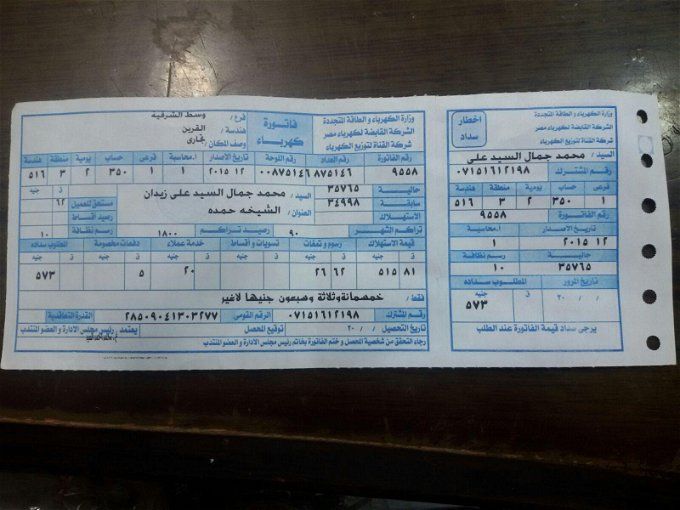 وزارة الكهرباء و الطاقة المتجددة
الشركة القابضة لكهرباء مصر
شركة القناة لتوزيع الكهرباء
فاتورة
كهرباء
فرع / وسط الشرقيه
هندسة / القرين
وصف المكان / تجارى
رقم الفاتورة رقم العداد رقم اللوحة تاريخ الاصدار ا.محاسبة فرعى حساب يومية منطقة هندسة
٩٥٥٨ ٨٧٥١٤٦ ٠٠٨٧٥١٤٦ ٢٠١٥ ١٢ ١ ١ ٣٥٠ ٢ ٣ ٥١٦
حالية ٣٥٧٦٥
سابقة ٣٤٩٩٨
الاستهلاك
السيد / محمد جمال السيد على زيدان
العنوان / الشيخه حمده
ق جنيه
مستحق للعميل ٦٢
رصيد أقساط
تراكم الشهر ٩٠ رصيد تراكم ١٨٠٠ رسم نظافة ١٠
قيمة الاستهلاك رسوم و تمغات تسويات و أقساط خدمة عملاء دفعات مخصومة المطلوب سداده
ق جنيه ق جنيه ق جنيه ق جنيه ق جنيه ق جنيه
٨١ ٥١٥ ٦٢ ٢٦ ٢٠ ٥ ٥٧٣
فقط / خمسمائة وثلاثة وسبعون جنيها لاغير
رقم المشترك ٠٧١٥١٦١٢١٩٨ الرقم القومى ٢٨٥٠٩٠٤١٣٠٣٢٧٧ القدرة التعاقدية
تاريخ التحصيل / / ٢٠ توقيع المحصل يعتمد / رئيس مجلس الادارة و العضو المنتدب
رجاء التحقق من شخصية المحصل و ختم الفاتورة بخاتم رئيس مجلس الادارة و العضو المنتدب
وزارة الكهرباء و الطاقة المتجددة
الشركة القابضة لكهرباء مصر
شركة القناة لتوزيع الكهرباء
اخطار
سداد
السيد / محمد جمال السيد على
رقم المشترك ٠٧١٥١٦١٢١٩٨
فرعى حساب يومية منطقة هندسة
١ ٣٥٠ ٢ ٣ ٥١٦
رقم الفاتورة ٩٥٥٨
تاريخ الاصدار ا.محاسبة
٢٠١٥ ١٢ ١
حالية رسم نظافة
٣٥٧٦٥ ١٠
تاريخ المرور المطلوب سداده
/ / ٢٠ ق جنيه
٥٧٣
يرجى سداد قيمة الفاتورة عند الطلب